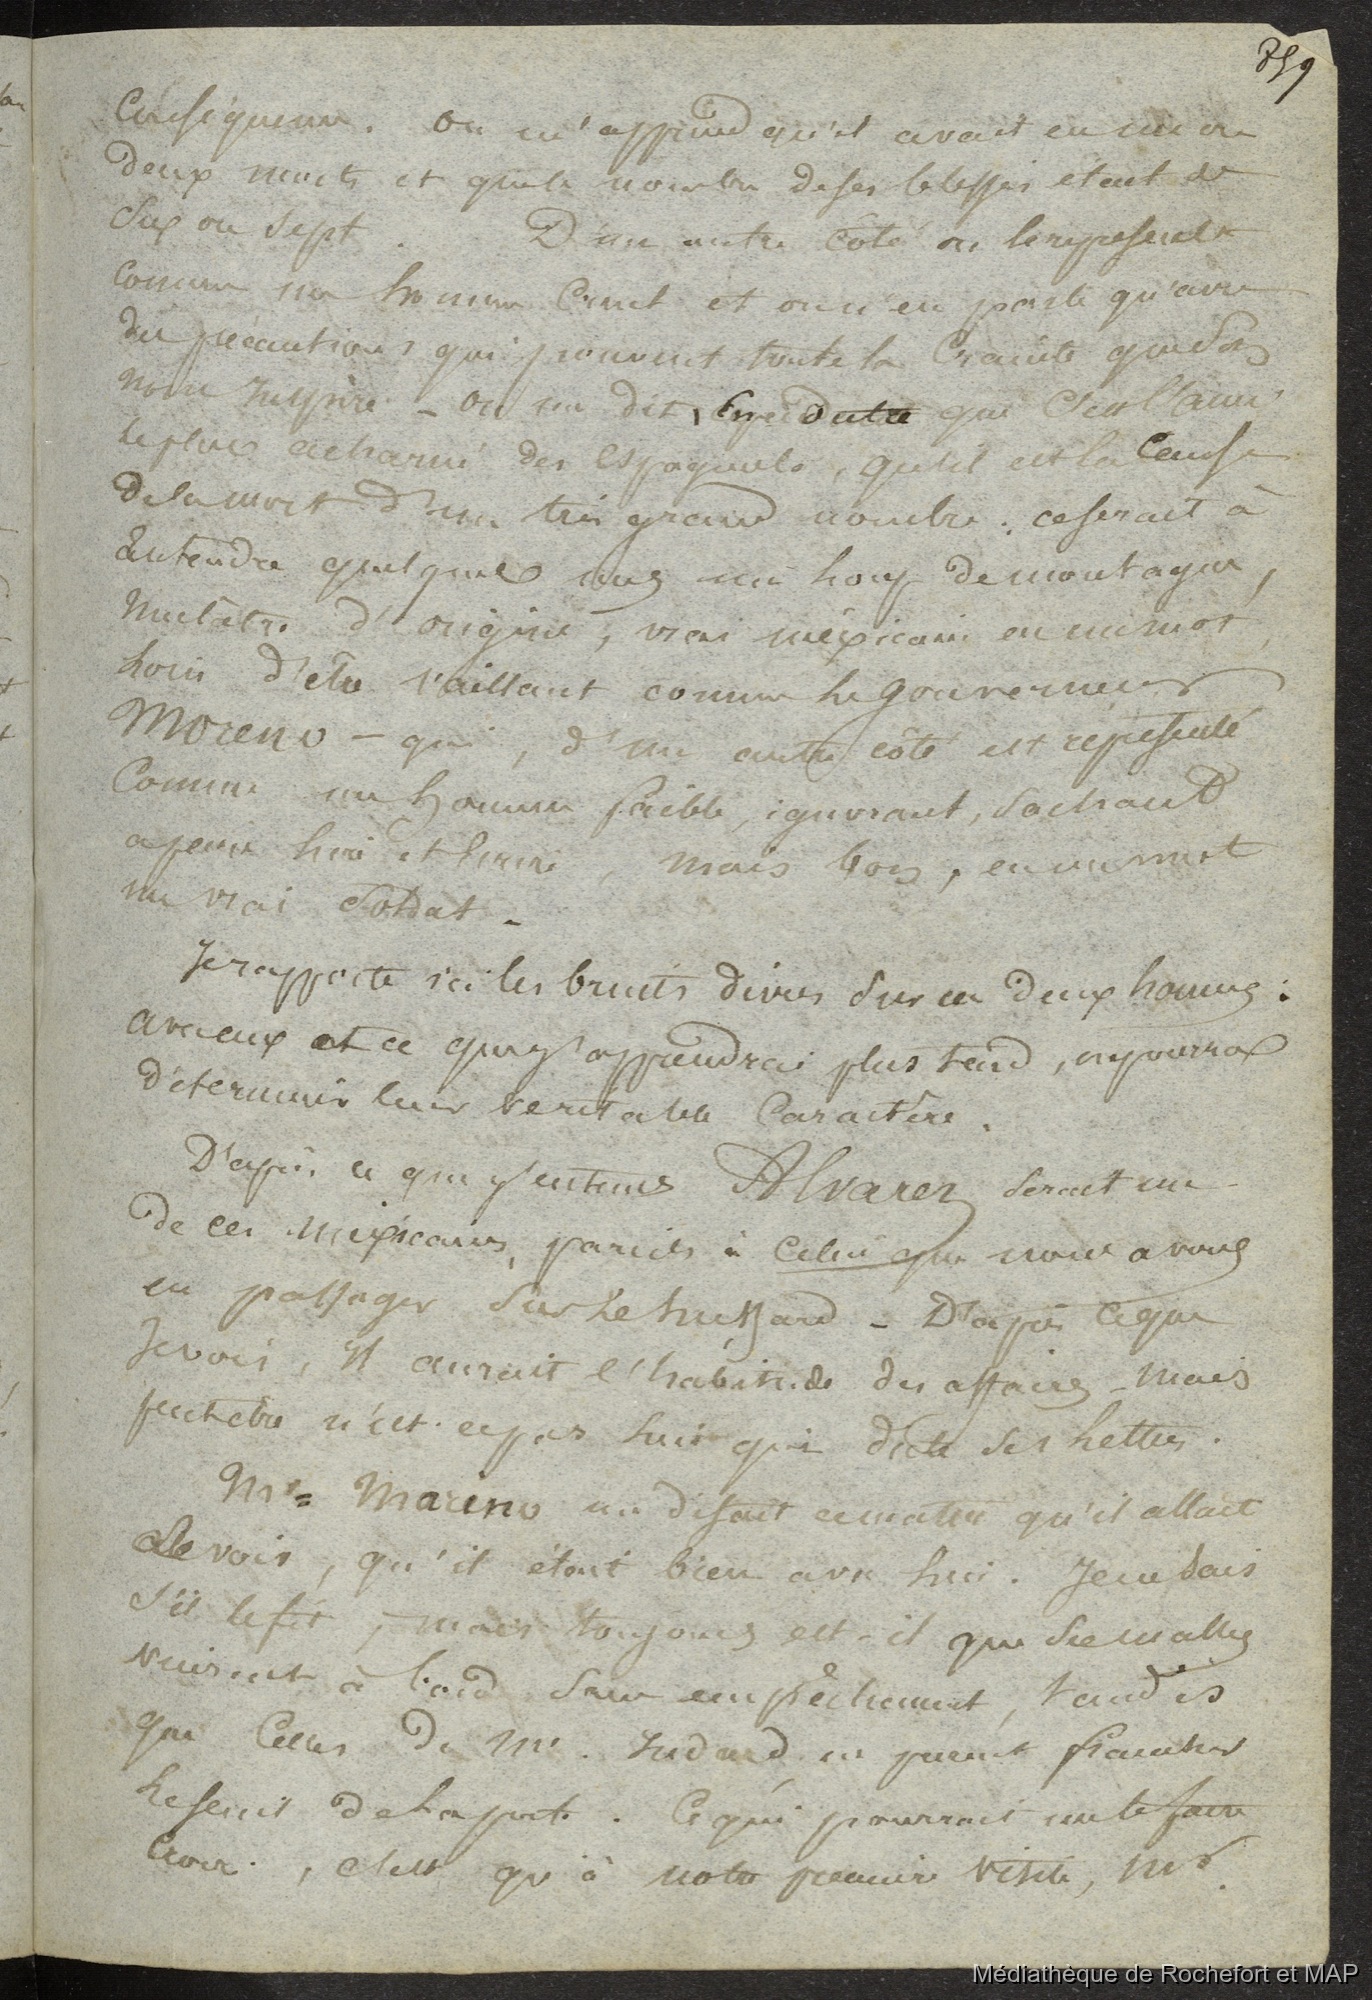 859
Conséquence. On m'apprend qu'il avait eu un ou
deux morts et que le nombre de ses blessés était de
Six ou Sept. D'un autre côté on le represente
comme un homme Cruel et on n'en parle qu'avec
des précautions qui prouvent toute la Crainte que Son
nom Inspire - On me dit, que C'est l'ami
le plus acharné des Espagnols, qu'il est la Cause
de la mort d'un très grand nombre. ce serait à
Entendre quelques uns un houp de montagne,
Mulâtre d'origine, vrai méxicain en un mot
Loin d'être Vaillant comme le gouverneur
Moreno - qui, d'un autre côté est représenté
Comme un homme faible, ignorant, Sachant
a peine lire et Ecrire, mais bon, en un mot
un vrai Soldat -
Je rapporte ici les bruits divers Sur ces deux hommes :
avec eux et ce que j'apprendrai plus tard, on pourra
déterminer leur veritable Caractère.
D'après ce que j'entens Alvarez Serait un
de ces Méxicains, pareils à Celui que nous avons
eu passager Sur Le hussard - D'après ce que
Je vois, Il aurait l'habitude des affaires - mais
peut être n'est-ce pas lui qui dicte Ses Lettres.
Mr= Mareno me disait ce matin qu'il allait
Le voir, qu'il étoit bien avec lui. Je ne Sais
S'il le fit, mais toujours est-il que Ses malles
vinrent à bord Sans empêchement, tandis
que Celles de Mr. ne purent franchir
Le Seuil de La porte. Ce qui pourrait me le faire
Croire, C'est qu'à notre première visite, Mr.
Médiathèque de Rochefort et MAP